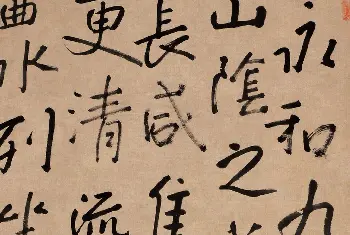 永和九
山陰之
長咸集
更清流
曲水列坐